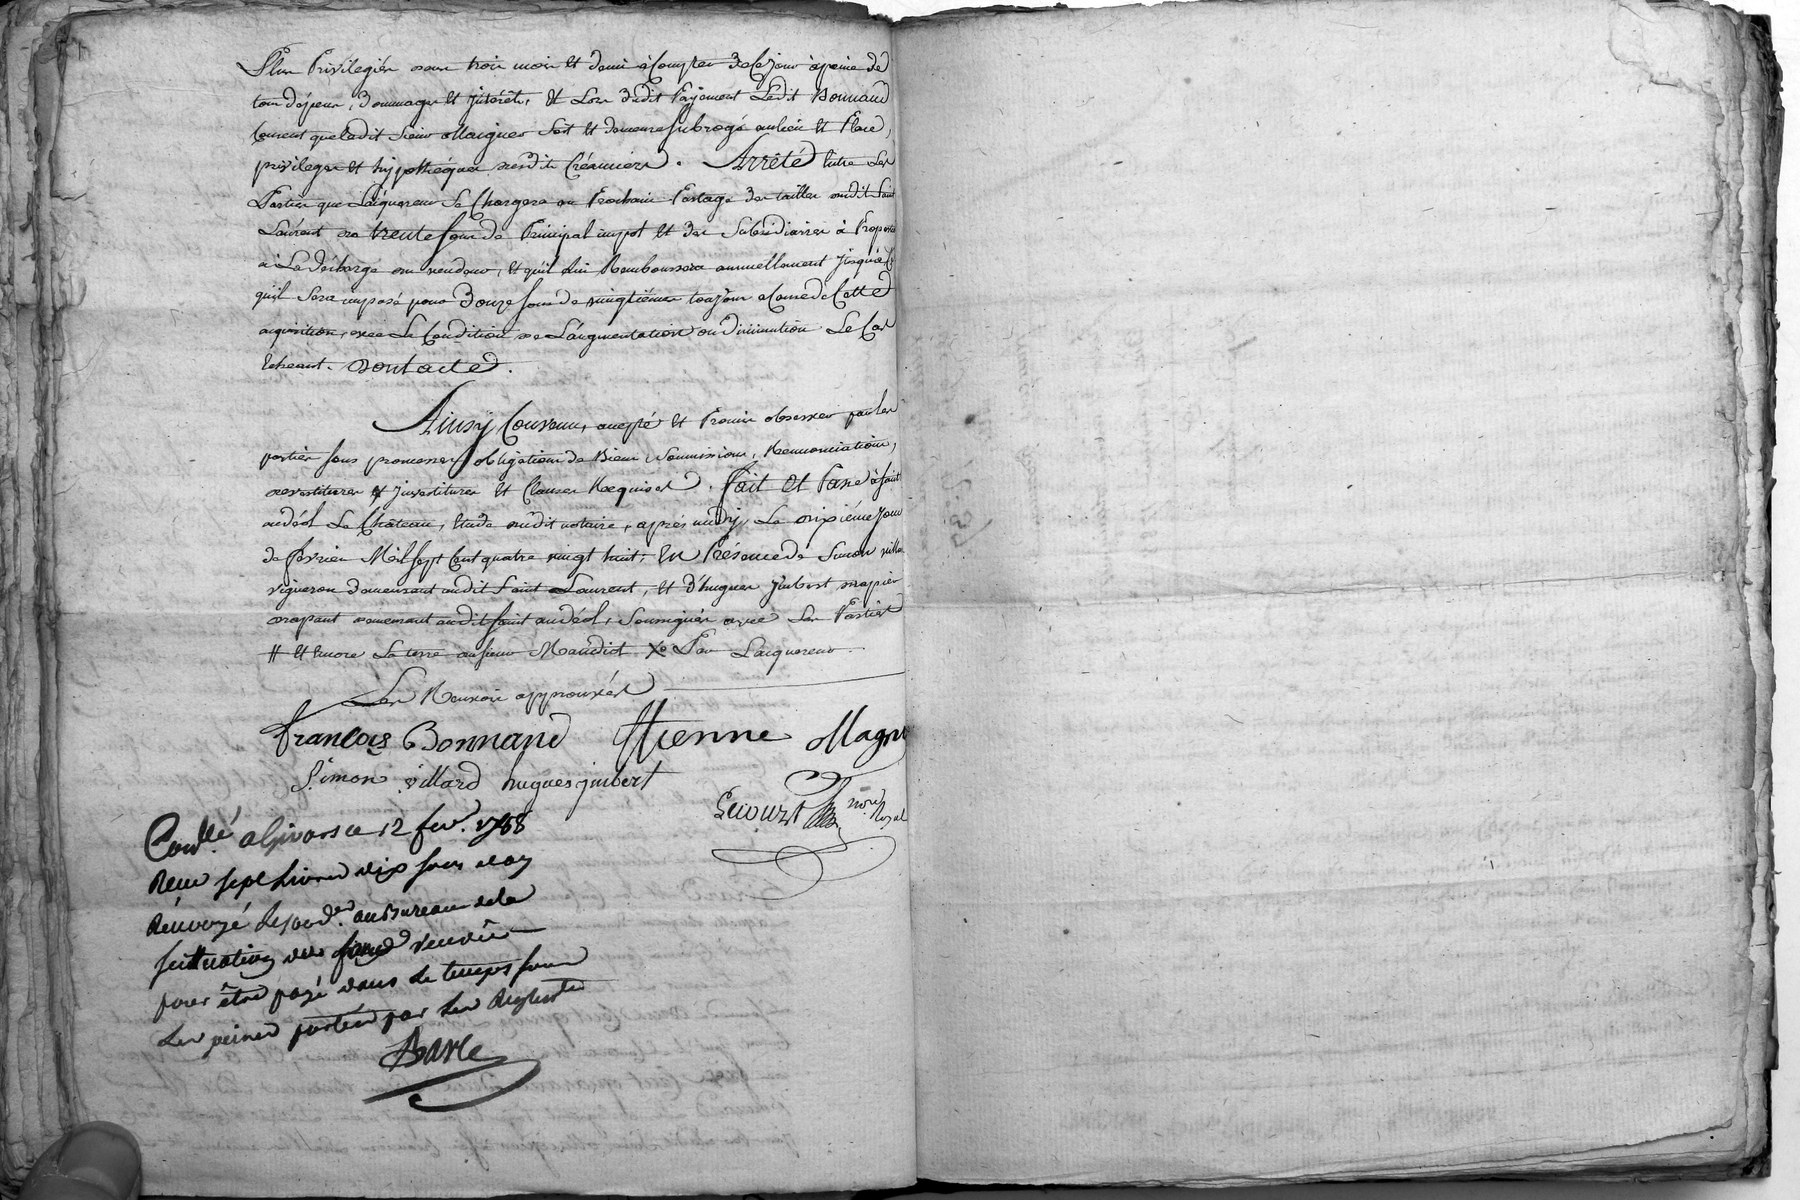 Plus Privilegiés dans trois mois et demi à Compter de Ce jour à peine de
tous dépens, dommages et jntérêts, et Lors dudit Payement Ledit Bonnaud
Consent que Ledit sieur Maigner soit et demeure subrogé au lieu et Place,
privileges et hypothéques desdits Créanciers. Arrêté Entre Les
Parties que L'aiquereur se Chargera au Prochain Partage des tailles dudit Saint
Laurent de trente sous de Principal impot et des Subsidiaires à Propor
à La décharge du vendeur, et qu'il Lui Remboursera annuellement jusqu'à C
qu'il sera imposé pour Douze sous de vingtiémes toujour à Cause de Cette
aquisition, avec La Condition de L'augmentation ou diminution Le Cas
Echeant. Dont acte.
Ainsÿ Convenu, accepté et Promis observer par les
parties sous promesses obligations de Biens, soumissions, Renonciations,
devestitures et jnvestitures et Clauses Requises. Fait et Passé à saint
andéol Le Château, Etude dudit notaire, après midÿ Le onziéme jour
de février Mil sept Cent quatre vingt huit, En Présence de Simon villar
vigneron demeurant audit Saint Laurent, et d'hugues jmbert
demeurant audit saint andéol, soussignés avec Les Parties
# et Encore La terre du sieur Maudiot X Par L'aiquereur
Les Renvois approuvés
françois Bonnand Ettienne Magn
Simon villard hugues jmbert
Not.re Royal
Con.llé a Givors ce 12 fev. 1788
Recu sept Livres dix sous et ay
Renvoyé Les au Bureau de la
situation des fonds vendus
pour être payé dans Le temps sous
Les peines portées par Les Reglem.ts
Barle